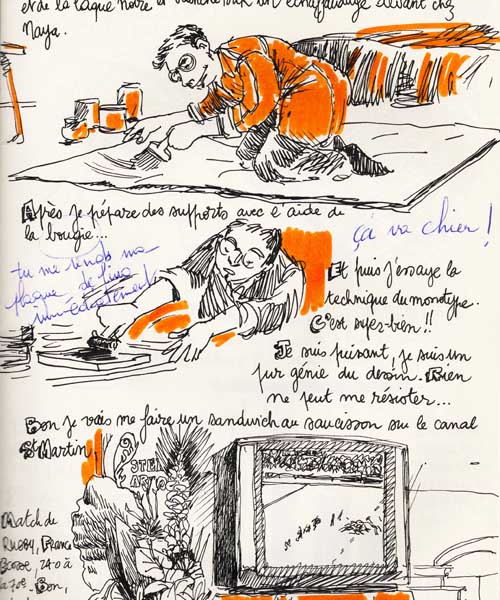 et de la laque noire et
un échaffaudage devant chez
Naya.
Après je prépare des supports avec l'aide de
la bougie...
ça va chier !
tu me rends ma
plaque de lino
immédiatement
Et puis j'essaye la
technique du monotype.
C'est supes-bien !!
Je suis puissant, je suis un
pur génie du dessin. Rien
ne peut me résister...
Bon je vais me faire un sandwich au saucisson sur le canal
St Martin.
STEL
ARTO
Match de
Rugby, France
24-0 à
la 70e. Bon,